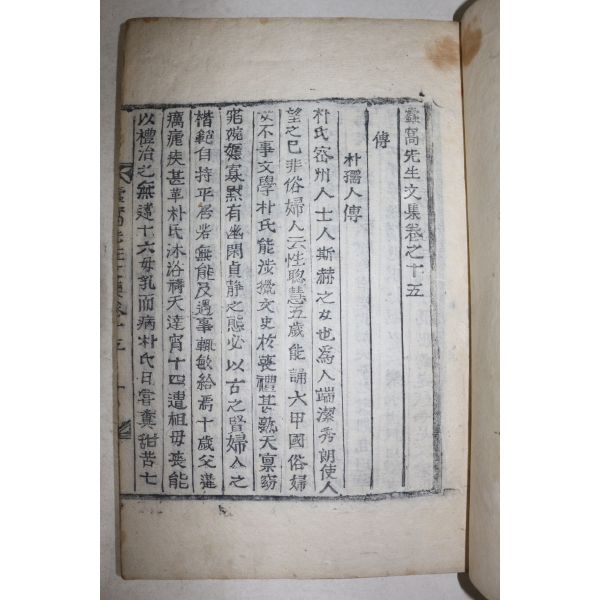 窩先生文集卷之十五
傳
朴孺人傳
朴氏密州人士人斯赫之女也爲人端潔秀朗使人
望之已非俗婦人云性聰慧五歲能誦六甲國俗婦
女不事文學朴氏能涉獵文史於喪禮甚熟天稟窈
窕婉嫕寡默有幽閑貞靜之態必以古之賢婦人之
楷範自持平居若無能及遇事輒敏給焉十歲父遘
癘瘧疾甚革朴氏沐浴禱天達宵十四遭祖母喪能
以禮治之無違十六母乳而病朴氏日嘗糞甜苦七